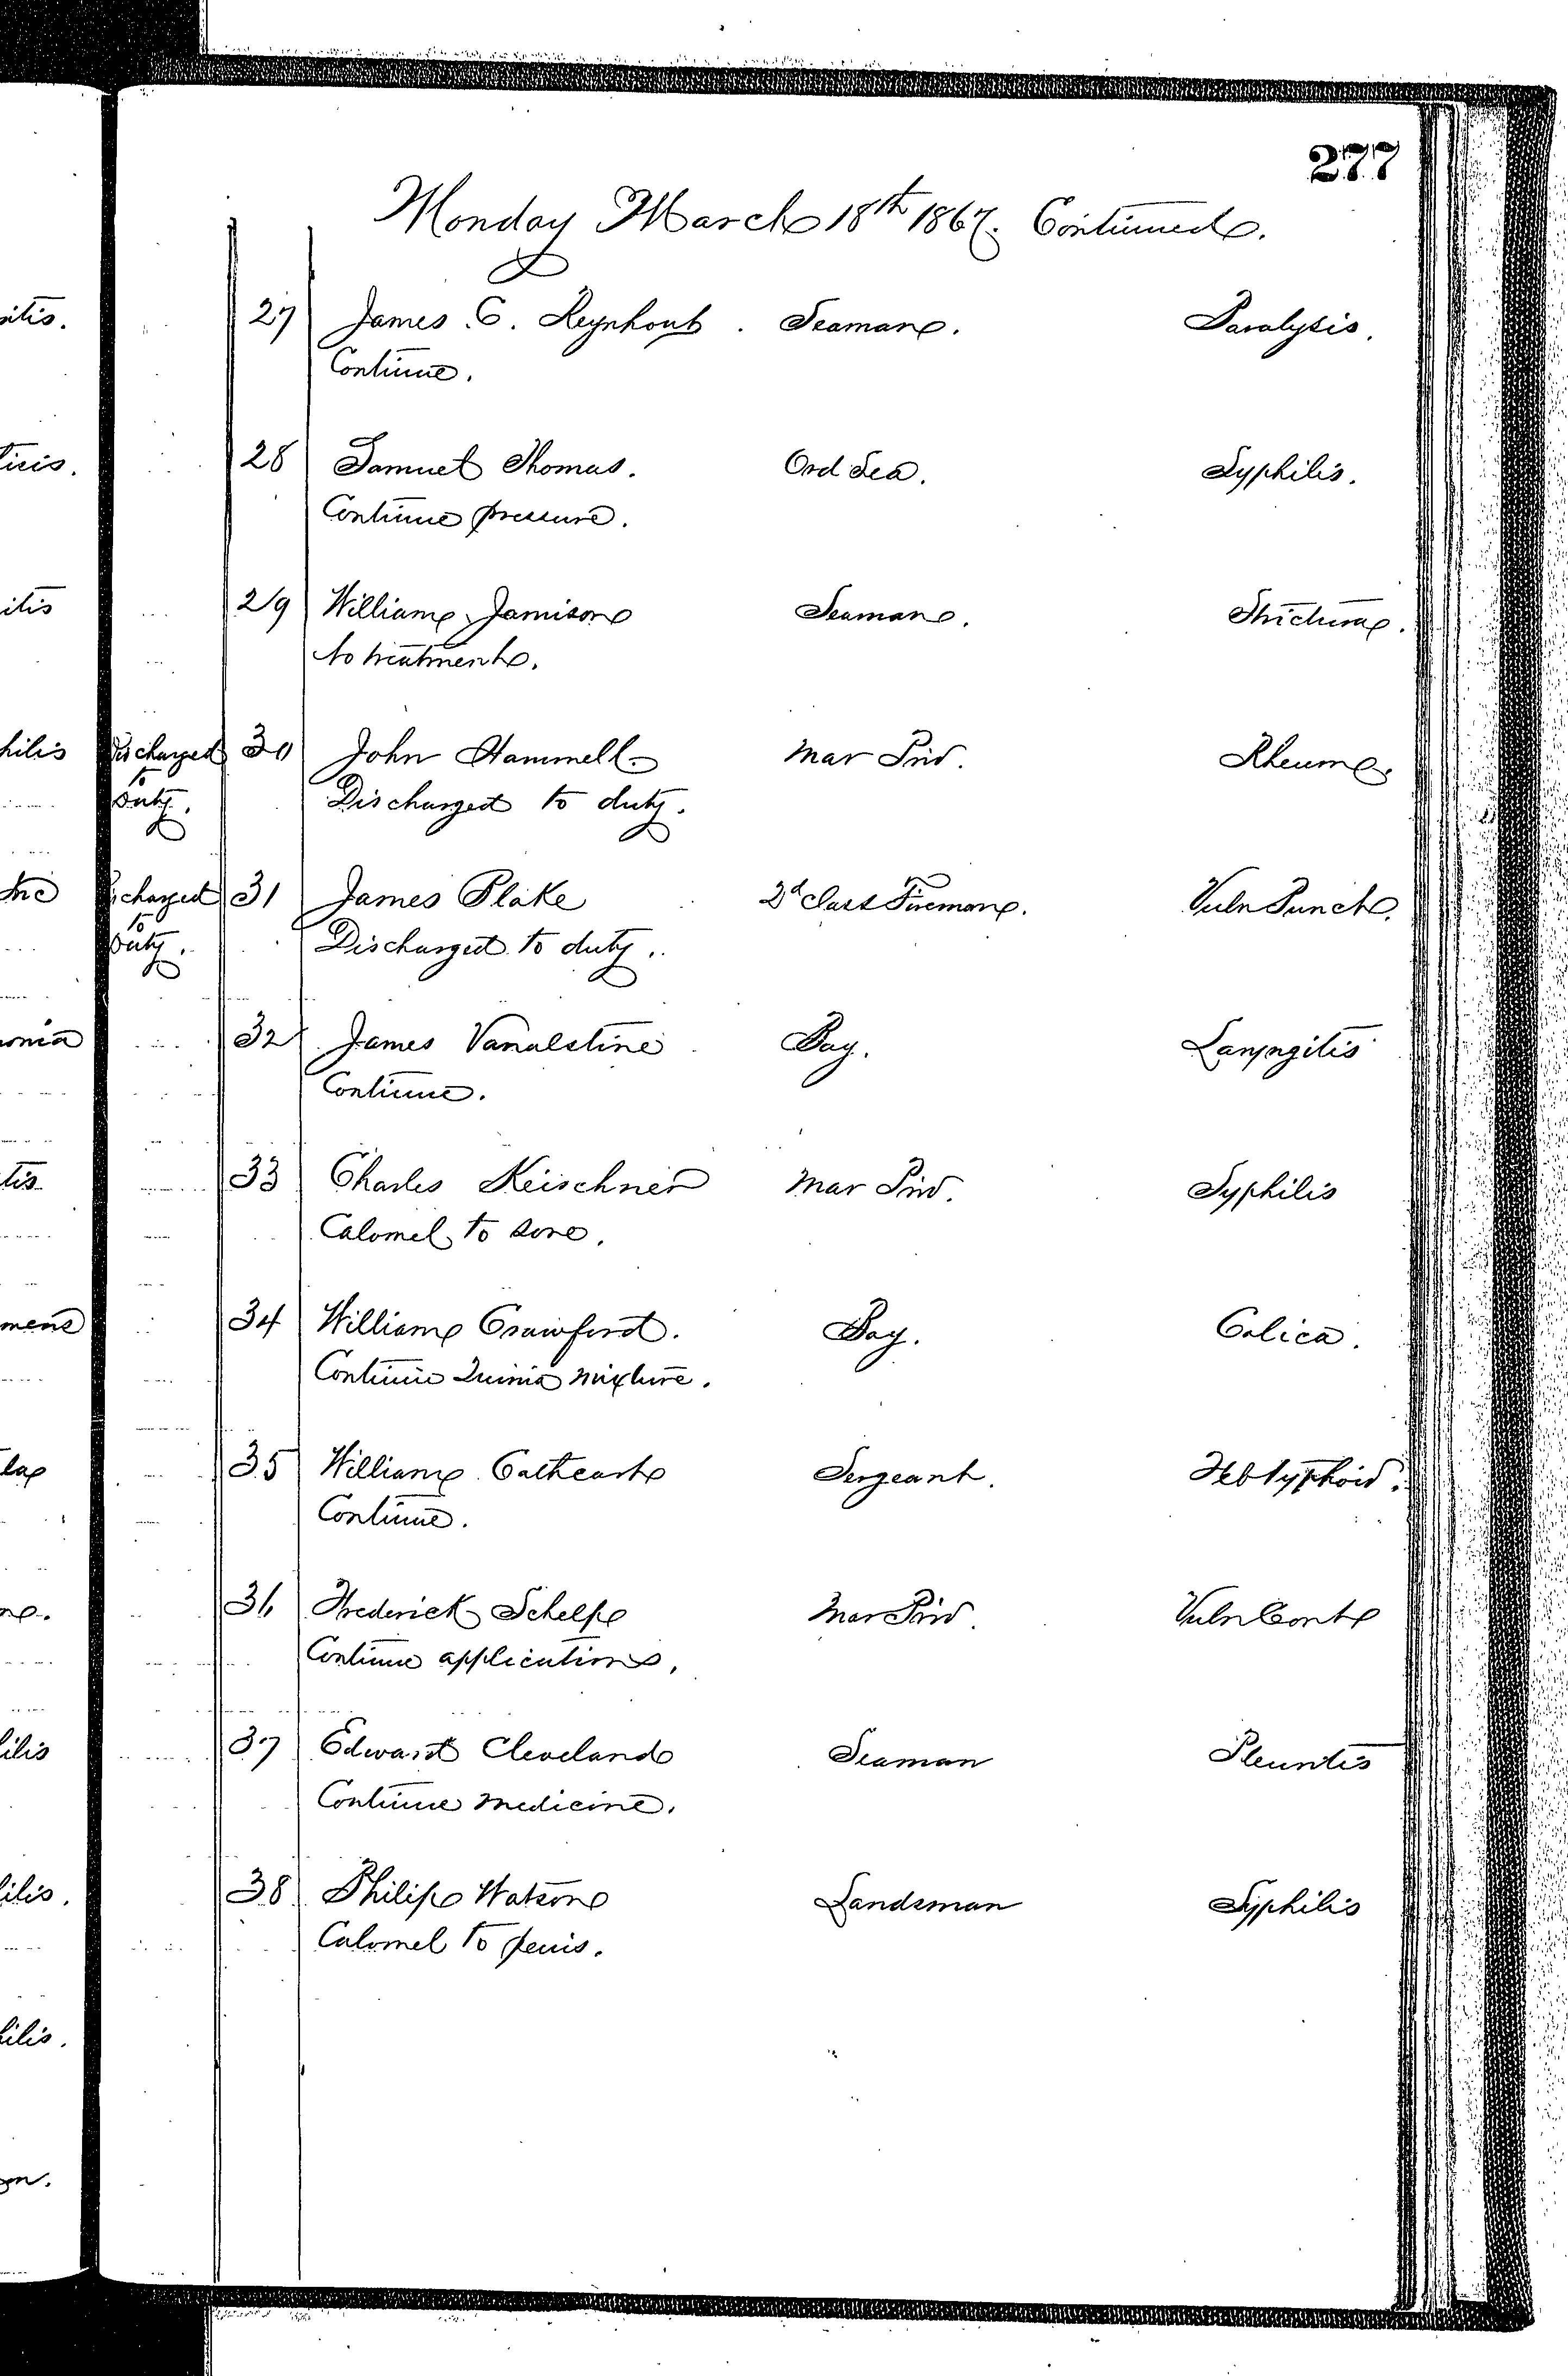 277
Monday March 18th 1867. Continued.
27 James C. Reynhout. Seaman. Paralysis.
Continue.
28 Samuel Thomas. Ord Sea. Syphilis.
Continue pressure.
29 William Jamison Seaman. Strictura.
No treatment.
Discharged to Duty. 30 John Hammell. Mar Priv. Rheum.
Discharged to duty.
Discharged to Duty. 31 James Blake 2d Class Fireman. Vuln Punct.
Discharged to duty.
32 James Vanalstine Bay. Laryngitis
Continue.
33 Charles Keischner Mar Priv. Syphilis
Calomel to sore.
34 William Crawford. Bay. Colica.
Continue Quinia mixture.
35 William Cathcart Sergeant. Feb typhoid.
Continue.
36 Frederick Schelp Mar Priv. Vuln Cont
Continue application.
37 Edward Cleveland Seaman Pleuritis
Continue medicine.
38 Philip Watson Landsman Syphilis
Calomel to penis.